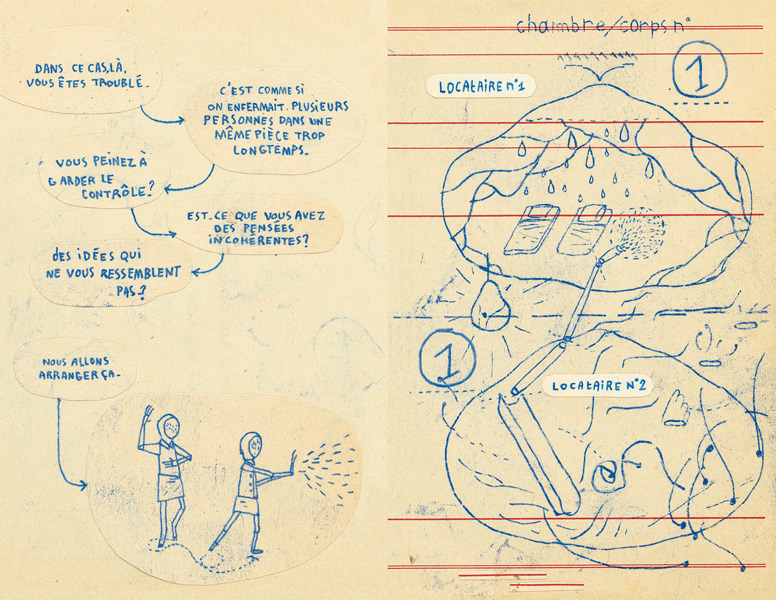 DANS CE CAS,LÀ,
VOUS ÊTES TROUBLÉ.
C'EST COMME SI
ON ENFERMAIT. PLUSIEURS
PERSONNES DANS UNE
MÊME PIÈCE TROP
LONGTEMPS.
VOUS PEINEZ À
GARDER LE
CONTRÔLE?
EST-CE QUE VOUS AVEZ
DES PENSÉES
INCOHÉRENTES?
DES IDÉES QUI
NE VOUS RESSEMBLENT
PAS?
NOUS ALLONS
ARRANGER ÇA-
chambre/corps n°
1
LOCATAIRE n°1
1
LOCATAIRE N°2